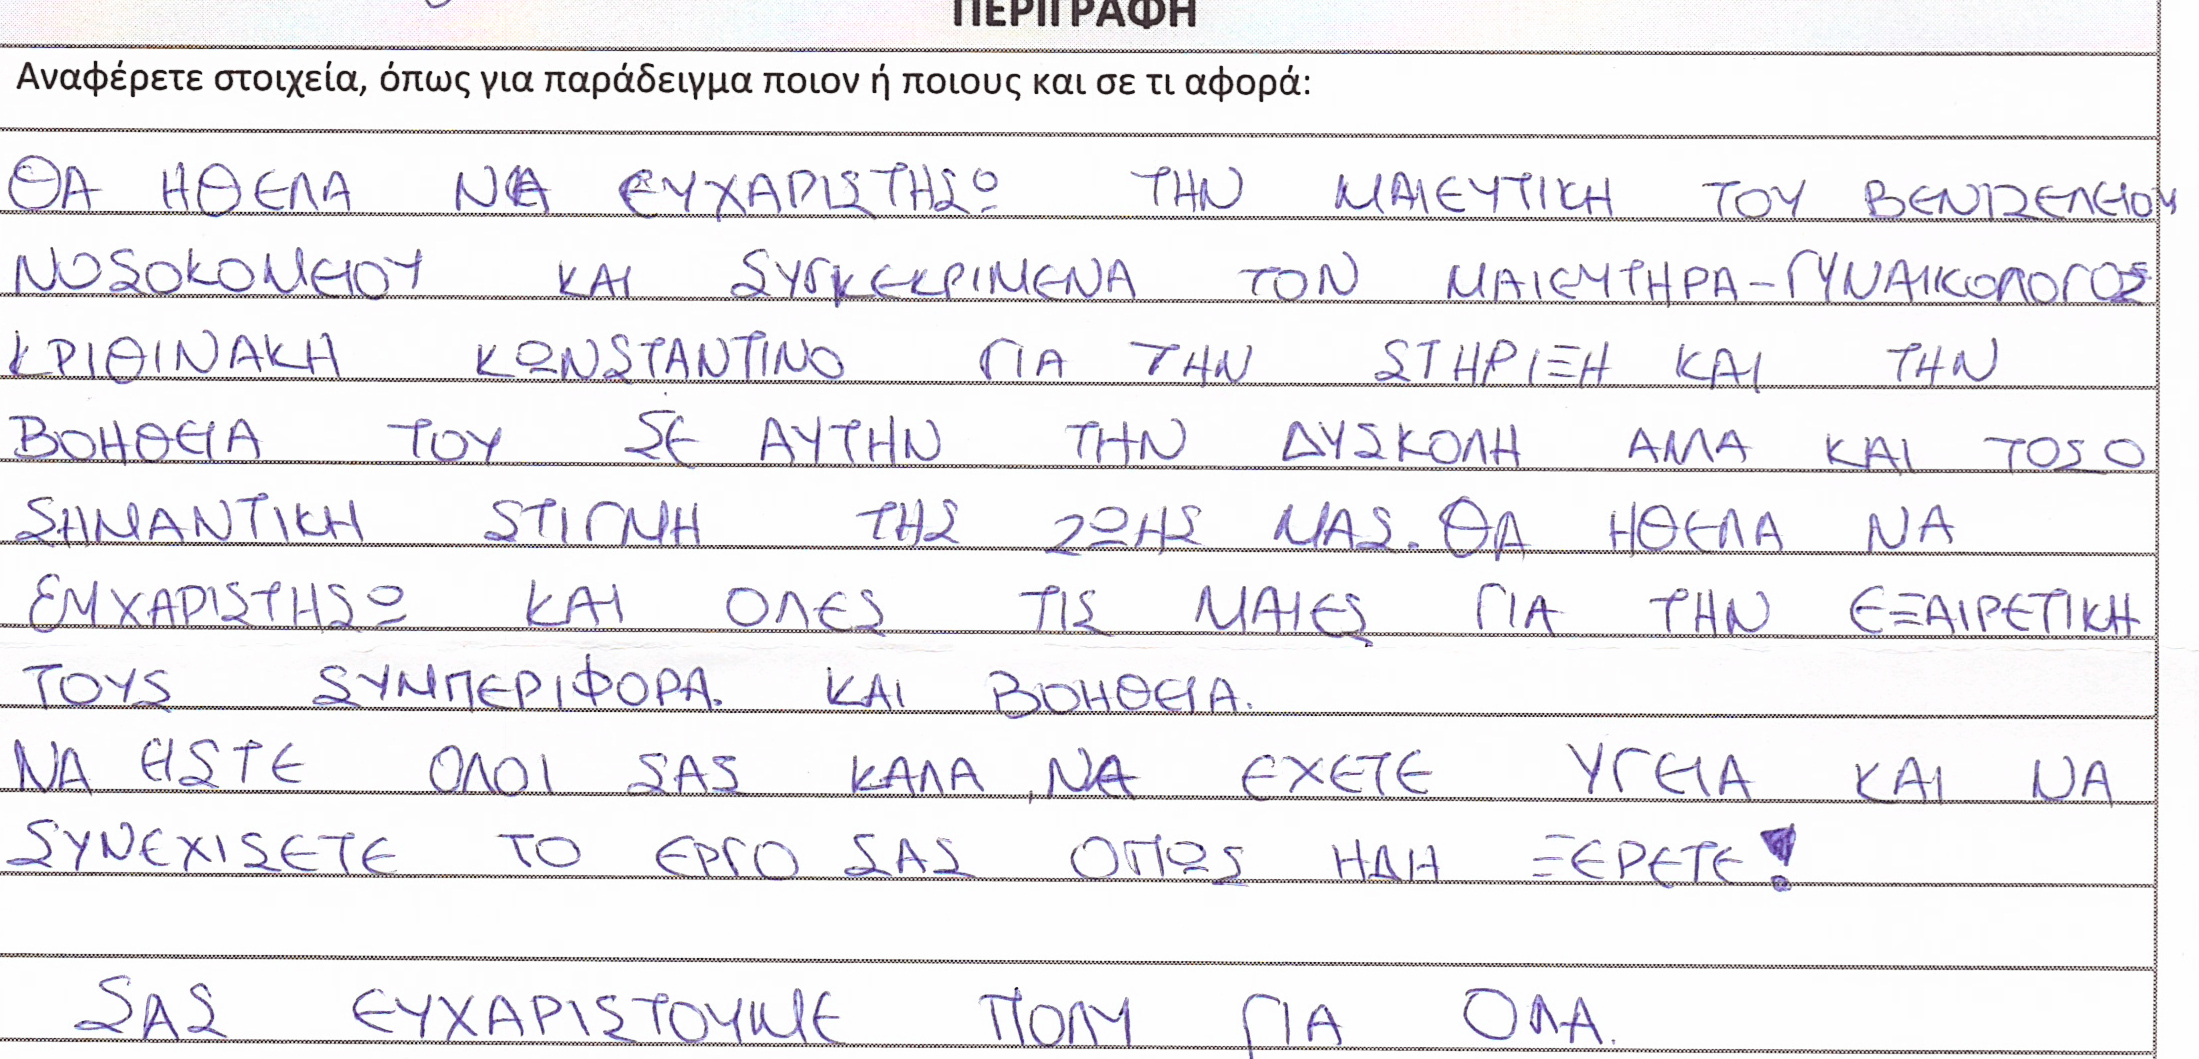 ΠΕΡΙΓΡΑΦΗ
Αναφέρετε στοιχεία, όπως για παράδειγμα ποιον ή ποιους και σε τι αφορά:
ΘΑ ΗΘΕΛΑ ΝΑ ΕΥΧΑΡΙΣΤΗΣΩ ΤΗΝ ΜΑΙΕΥΤΙΚΗ ΤΟΥ ΒΕΝΙΖΕΛΕΙΟΥ
ΝΟΣΟΚΟΜΕΙΟΥ ΚΑΙ ΣΥΓΚΕΚΡΙΜΕΝΑ ΤΟΝ ΜΑΙΕΥΤΗΡΑ-ΓΥΝΑΙΚΟΛΟΓΟΣ
ΚΡΙΘΙΝΑΚΗ ΚΩΝΣΤΑΝΤΙΝΟ ΓΙΑ ΤΗΝ ΣΤΗΡΙΞΗ ΚΑΙ ΤΗΝ
ΒΟΗΘΕΙΑ ΤΟΥ ΣΕ ΑΥΤΗΝ ΤΗΝ ΔΥΣΚΟΛΗ ΑΛΛΑ ΚΑΙ ΤΟΣΟ
ΣΗΜΑΝΤΙΚΗ ΣΤΙΓΜΗ ΤΗΣ ΖΩΗΣ ΜΑΣ. ΘΑ ΗΘΕΛΑ ΝΑ
ΕΥΧΑΡΙΣΤΗΣΩ ΚΑΙ ΟΛΕΣ ΤΙΣ ΜΑΙΕΣ ΓΙΑ ΤΗΝ ΕΞΑΙΡΕΤΙΚΗ
ΤΟΥΣ ΣΥΜΠΕΡΙΦΟΡΑ. ΚΑΙ ΒΟΗΘΕΙΑ.
ΝΑ ΕΙΣΤΕ ΟΛΟΙ ΣΑΣ ΚΑΛΑ, ΝΑ ΕΧΕΤΕ ΥΓΕΙΑ ΚΑΙ ΝΑ
ΣΥΝΕΧΙΣΕΤΕ ΤΟ ΕΡΓΟ ΣΑΣ ΟΠΩΣ ΗΔΗ ΞΕΡΕΤΕ!
ΣΑΣ ΕΥΧΑΡΙΣΤΟΥΜΕ ΠΟΛΥ ΓΙΑ ΟΛΑ.